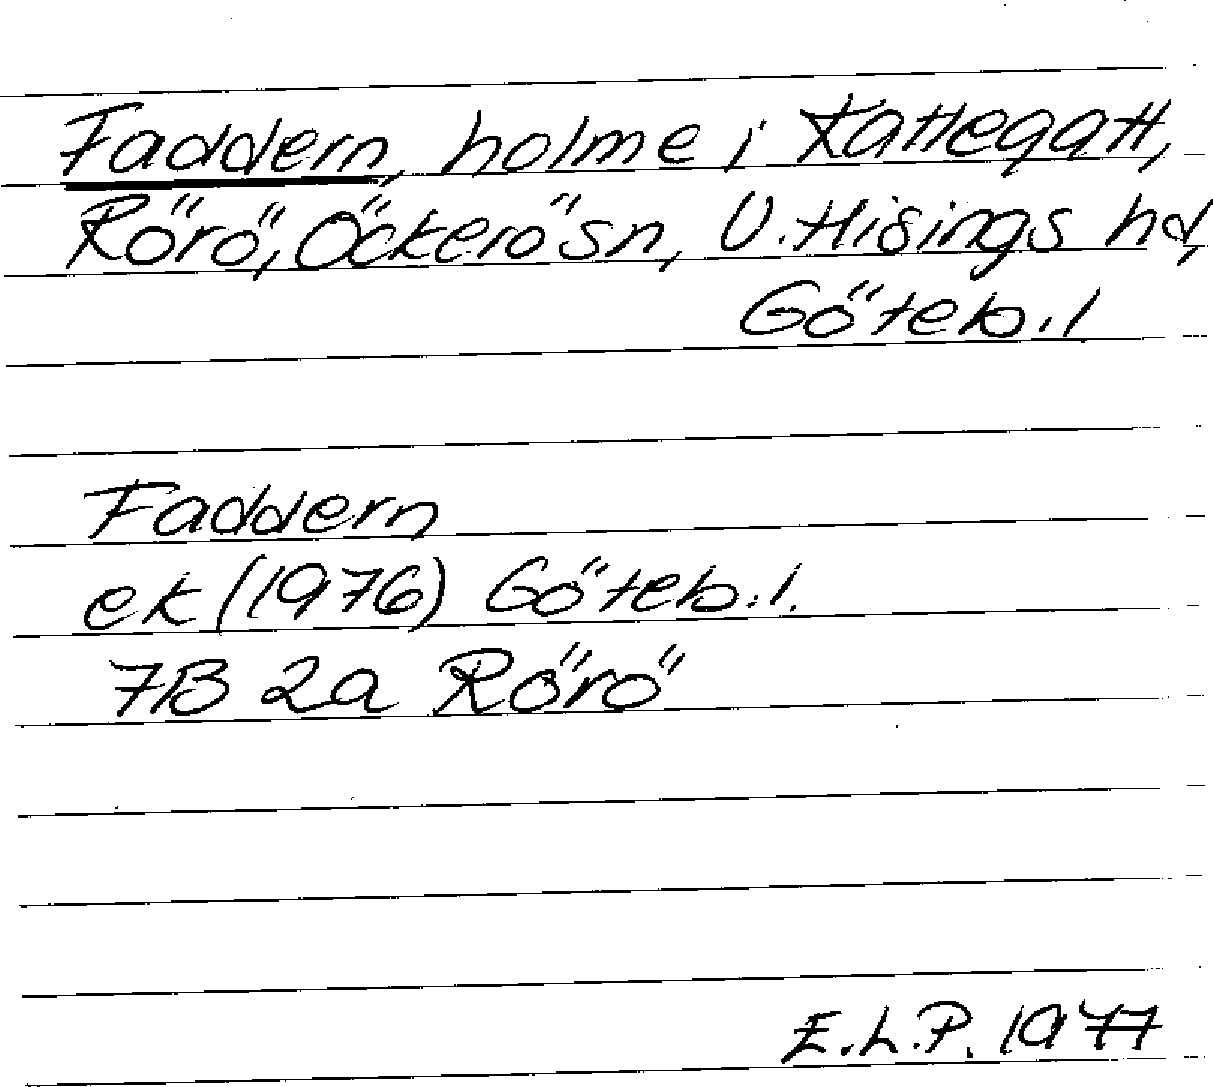 Faddern, holme i Kattegatt,
Rörö, Öckerö sn, V. Hisings hd,
Göteb. l
Faddern
ek (1976) Göteb. l.
7B 2a Rörö
E.L.P. 1977